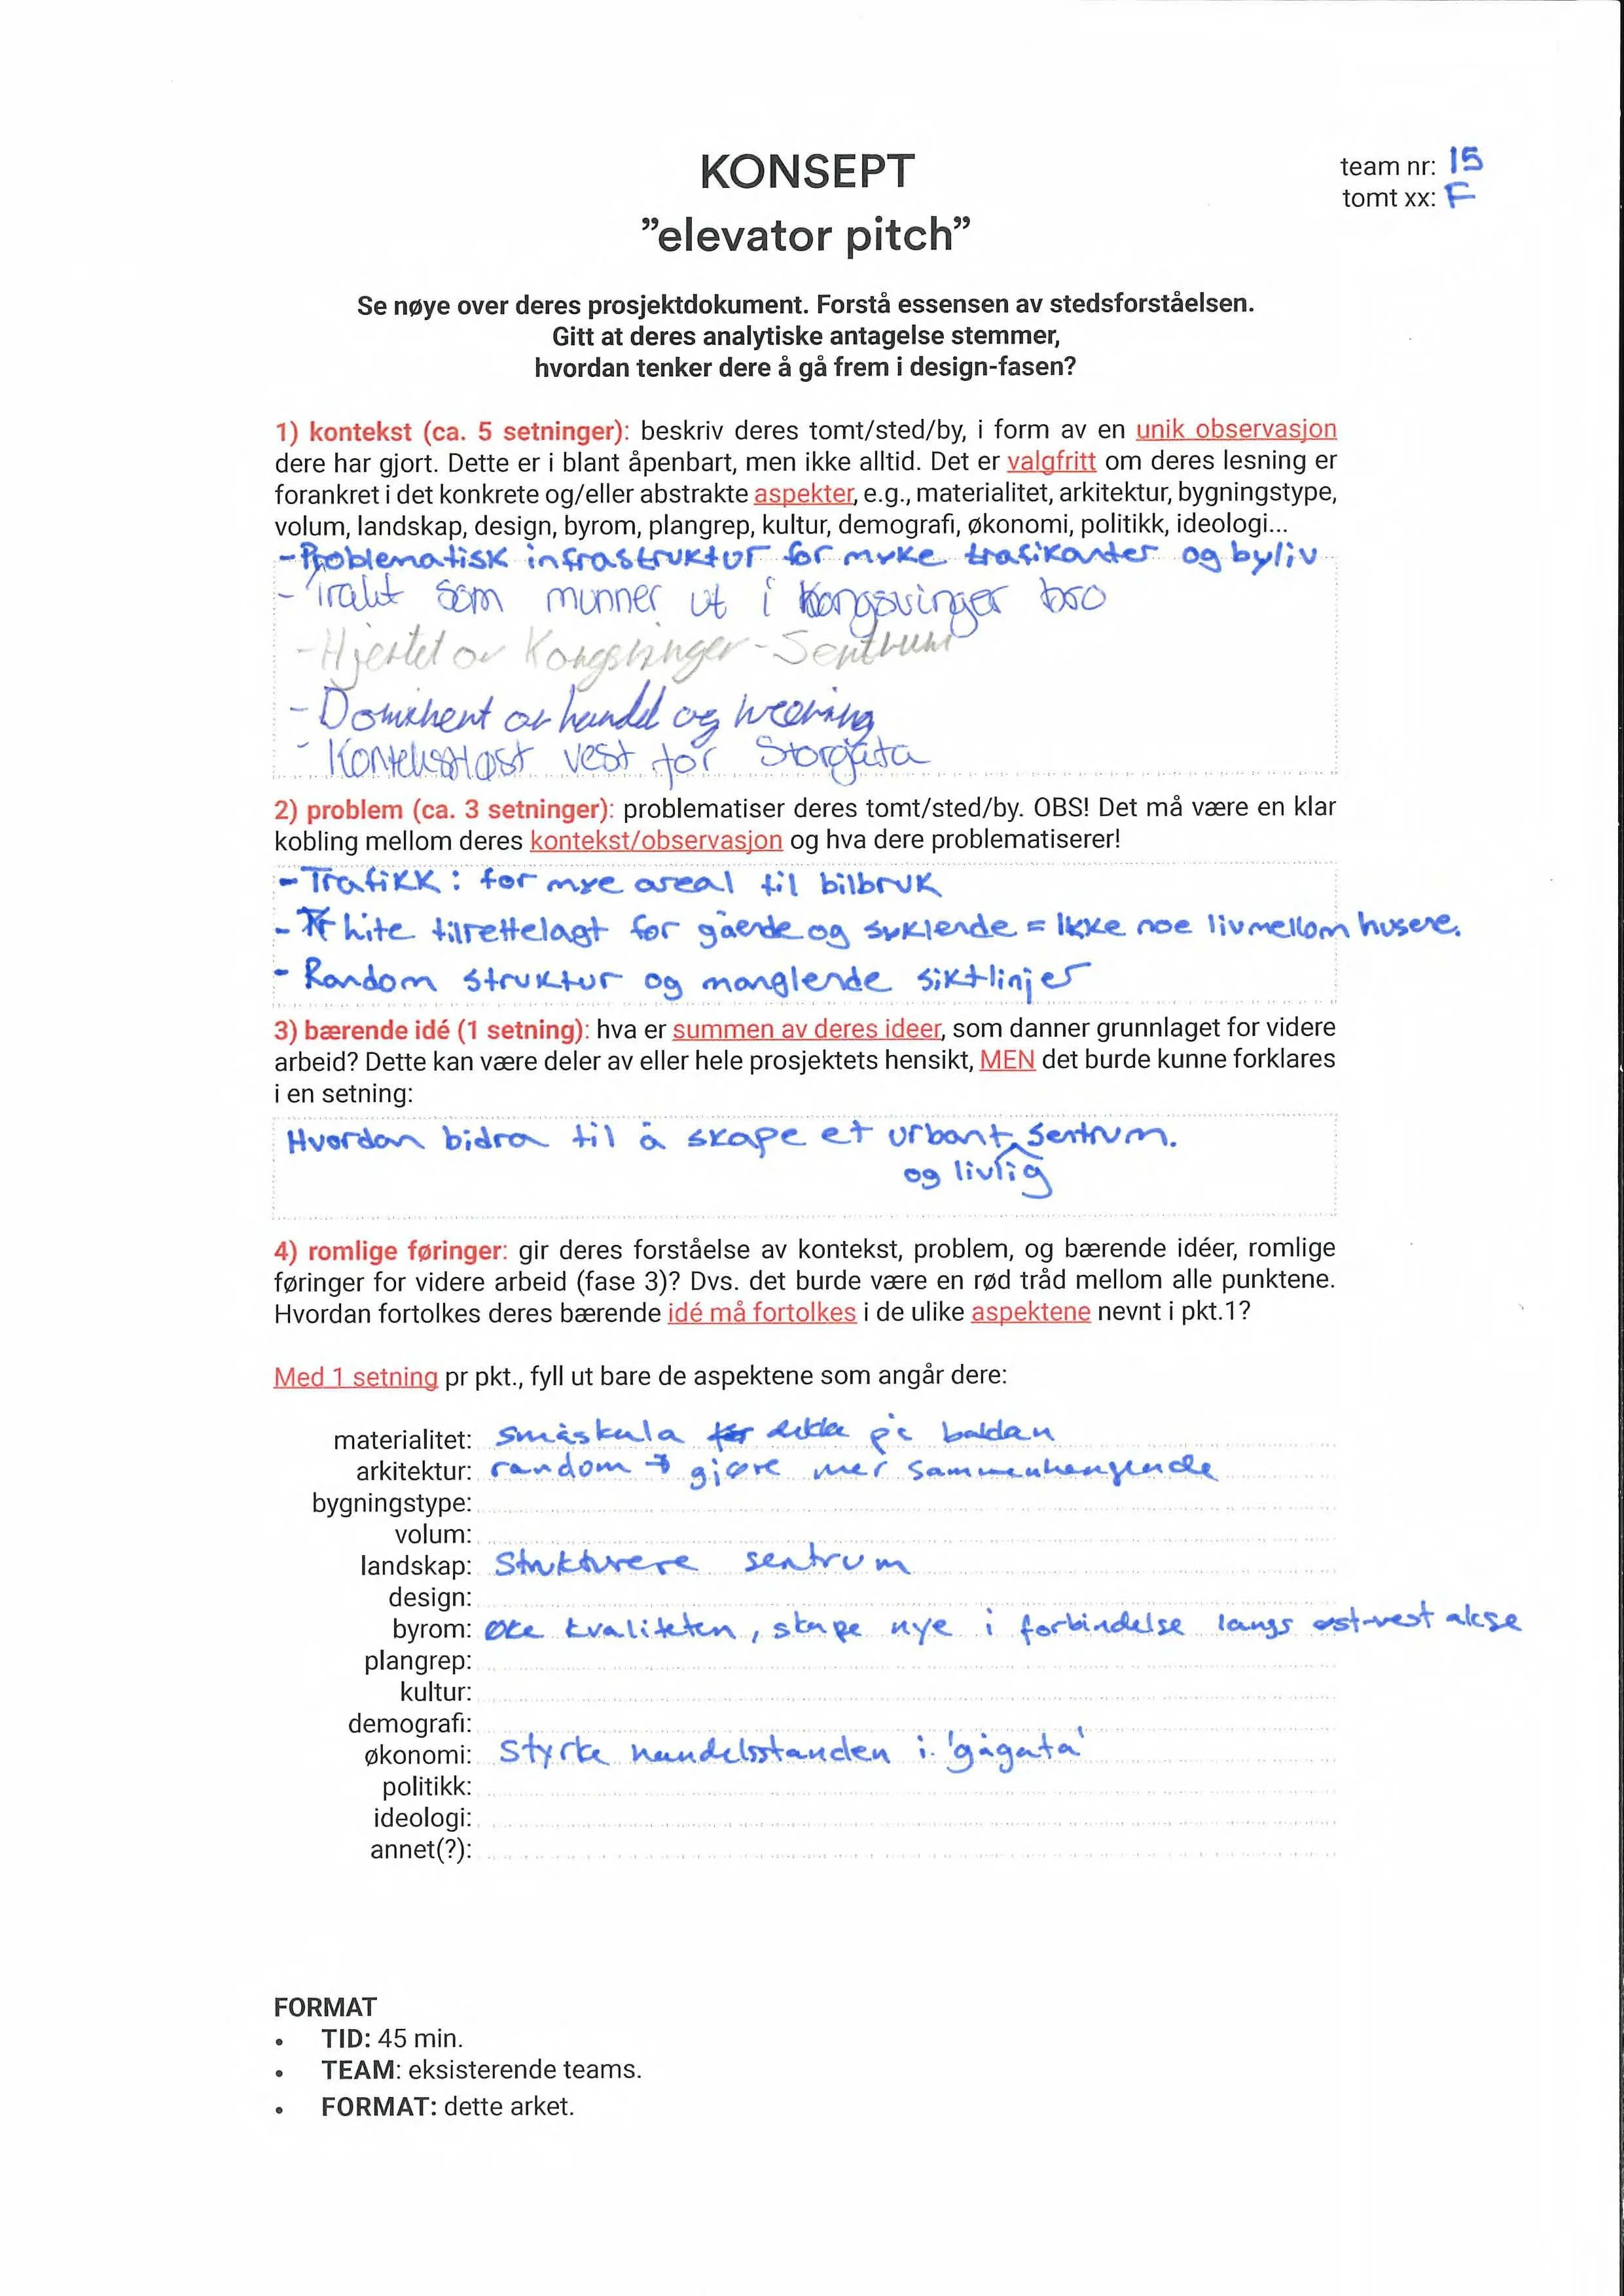 KONSEPT
team nr: 15
tomt xx: F
”elevator pitch”
Se nøye over deres prosjektdokument. Forstå essensen av stedsforståelsen.
Gitt at deres analytiske antagelse stemmer,
hvordan tenker dere å gå frem i design-fasen?
1) kontekst (ca. 5 setninger): beskriv deres tomt/sted/by, i form av en unik observasjon
dere har gjort. Dette er i blant åpenbart, men ikke alltid. Det er valgfritt om deres lesning er
forankret i det konkrete og/eller abstrakte aspekter, e.g., materialitet, arkitektur, bygningstype,
volum, landskap, design, byrom, plangrep, kultur, demografi, økonomi, politikk, ideologi...
- Problematisk infrastruktur for myke trafikanter og byliv
- Trakt som munner ut i Kongsvinger bro
- Hjertet av Kongsvinger - Sentrum
- Dominent av handel og næring
- Kontekstløst vest for Storgata
2) problem (ca. 3 setninger): problematiser deres tomt/sted/by. OBS! Det må være en klar
kobling mellom deres kontekst/observasjon og hva dere problematiserer!
- Trafikk: for mye areal til bilbruk
- Lite tilrettelagt for gående og syklende = Ikke noe liv mellom husene.
- Random struktur og manglende siktlinjer
3) bærende idé (1 setning): hva er summen av deres ideer, som danner grunnlaget for videre
arbeid? Dette kan være deler av eller hele prosjektets hensikt, MEN det burde kunne forklares
i en setning:
Hvordan bidra til å skape et urbant sentrum.
og livlig
4) romlige føringer: gir deres forståelse av kontekst, problem, og bærende idéer, romlige
føringer for videre arbeid (fase 3)? Dvs. det burde være en rød tråd mellom alle punktene.
Hvordan fortolkes deres bærende idé må fortolkes i de ulike aspektene nevnt i pkt.1?
Med 1 setning pr pkt., fyll ut bare de aspektene som angår dere:
materialitet: småskala dekke på
arkitektur: random → gjøre mer sammenhengende
bygningstype:
volum:
landskap: Strukturere sentrum
design:
byrom: øke kvaliteten, skape nye i forbindelse langs øst-vest akse
plangrep:
kultur:
demografi:
økonomi: styrke handelsstanden i 'gågata'
politikk:
ideologi:
annet(?):
FORMAT
• TID: 45 min.
• TEAM: eksisterende teams.
• FORMAT: dette arket.